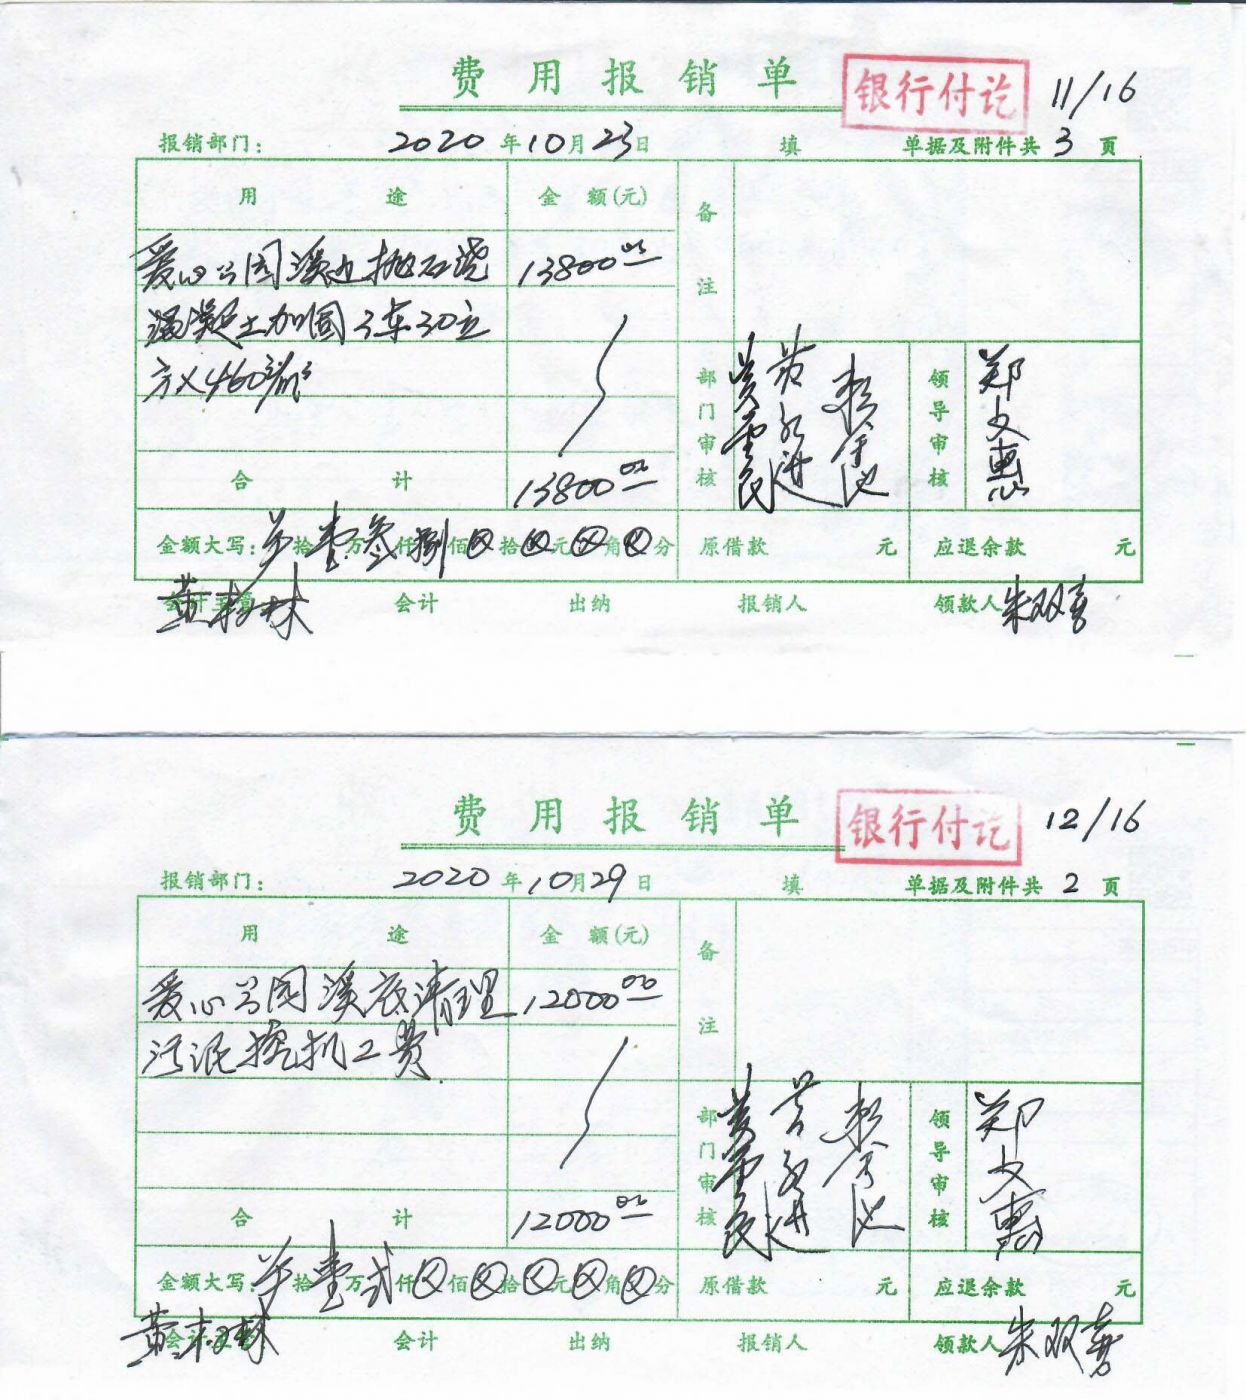 费用报销单 银行付讫 11/16
报销部门： 2020年10月23日 填 单据及附件共3页
用途 金额(元) 备注
爱心公园溪边抛石浇 13800
混凝土加固3车30立
方×460元/m³
部门审核 领导审核 郑文惠
合计 13800
金额大写： 拾壹万叁仟捌佰⊗拾⊗元⊗角⊗分 原借款 元 应退余款 元
会计主管 会计 出纳 报销人 领款人 朱双喜
费用报销单 银行付讫 12/16
报销部门： 2020年10月29日 填 单据及附件共2页
用途 金额(元) 备注
爱心公园溪底清理 12000
污泥挖机工费
部门审核 领导审核 郑文惠
合计 12000
金额大写： 拾壹万弍仟⊗佰⊗拾⊗元⊗角⊗分 原借款 元 应退余款 元
会计 出纳 报销人 领款人 朱双喜